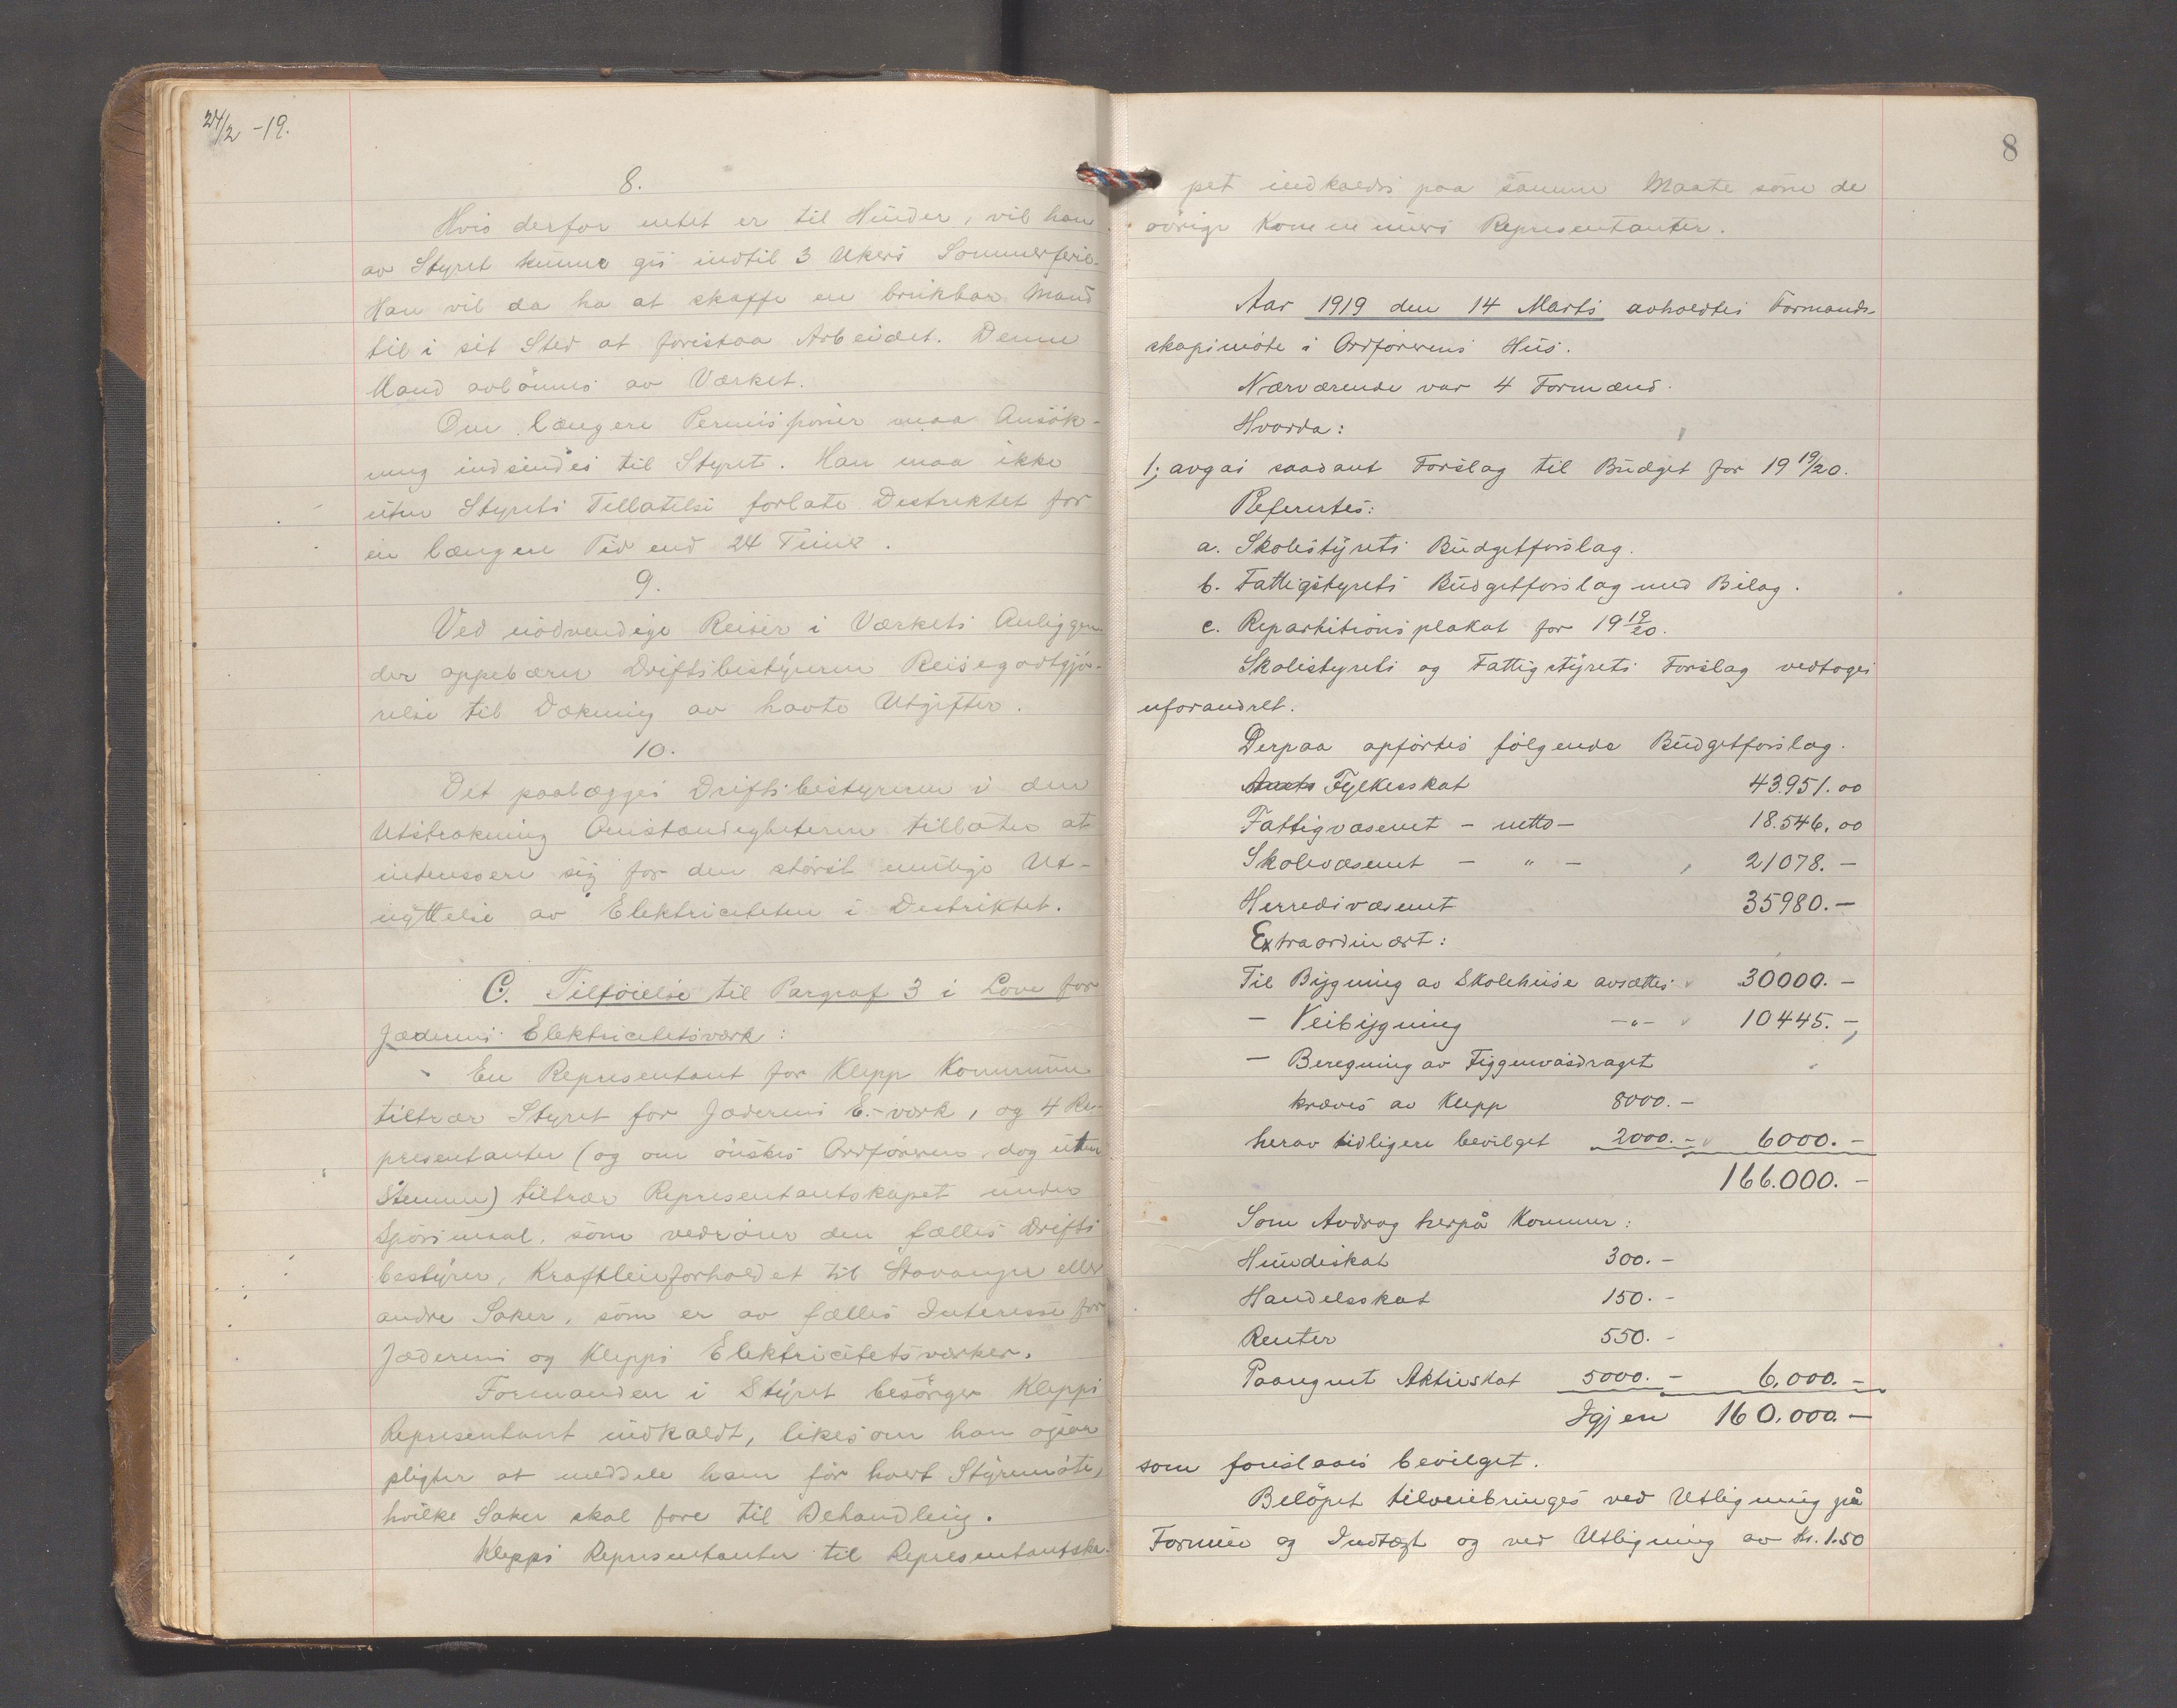 24/2 -19.
8.
Hvis derfor intet er til Hinder, vil han
av Styret kunne gis indtil 3 Ukers Sommerferie.
Han vil da ha at skaffe en brukbar Mand
til i sit Sted at forestaa Arbeidet. Denne
Mand avlönnes av Værket.
Om længere Permissioner maa Ansök-
ning indsendes til Styret. Han maa ikke
uten Styrets Tillatelse forlate Destriktet for
en længere Tid end 24 Timer.
9.
Ved nödvendige Reiser i Værkets Anliggen-
der oppebærer Driftsbestyreren Reisegodtgjör-
relse til Dækning av havte Utgifter.
10.
Det paalægges Driftsbestyreren i den
Utstrækning Omstændigheterne tillater at
interessere sig for den störst mulige Ut-
nyttelse av Elektriciteten i Destriktet.
C. Tilföielse til Pargraf 3 i Love for
Jæderens Elektricitetsværk:
En Representant for Klepp Kommune
tiltrær Styret for Jæderens E.-værk, og 4 Re-
presentanter (og om önskes Ordföreren dog uten
Stemme) tiltrær Representantskapet under
Spörsmaal, som vedrörer den fælles Drifts
bestyrer, Kraftleieforholdet til Stavanger eller
andre Saker, som er av fælles Interesse for
Jæderens og Klepps Elektricitetsværker.
Formanden i Styret besörger Klepps
Representant indkaldt, likesom han ogsaa
pligter at meddele ham för hvert Styremöte,
hvilke Saker skal fore til Behandling.
Klepps Representanter til Representantska-
8
pet indkaldes paa samme Maate som de
övrige Kommuners Representanter.
Aar 1919 den 14 Marts avholdtes Formand-
skapsmöte i Ordförerens Hus.
Nærværende var 4 Formænd.
Hvorda:
1; avgas saadant Forslag til Budget for 19 19/20.
Referertes:
a. Skolestyrets Budgetforslag.
b. Fattigstyrets Budgetforslag med Bilag.
c. Repartitionsplakat for 19 19/20.
Skolestyrets og Fattigstyrets Forslag vedtoges
uforandret.
Derpaa opförtes fölgende Budgetforslag.
Amts Fylkesskat 43.951.00
Fattigvæsenet - netto - 18.546.00
Skolevæsenet - " - 21078.-
Herredsvæsenet 35980.-
Extraordinært:
Til Bygning av Skolehuse avsættes 30000.-
- Veibygning -"- 10445.-
- Beregning av Figgenvasdraget
kræves av Klepp 8000.-
herav tidligere bevilget 2000.- 6000.-
166.000.-
Som Avdrag herpå kommer:
Hundeskat 300.-
Handelsskat 150.-
Renter 550.-
Paaregnet Aktieskat 5000.- 6,000.-
Igjen 160.000.-
som foreslaaes bevilget.
Belöpet tilveiebringes ved Utligning på
Formue og Indtægt og ved Utligning av kr. 1.50